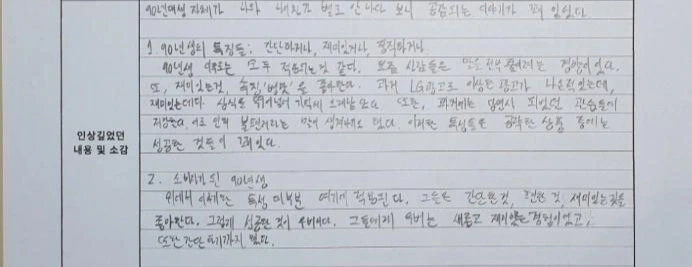 90년대생 자체가 나와 나이차가 별로 안나다 보니 공감되는 이야기가 꽤 있었다.
1. 90년생의 특징들: 간단하거나, 재미있거나, 정직하거나.
90년생 이후로는 모두 적용되는것 같다. 요즘 사람들은 단순 줄이려는 경향이 있다.
또, 재미있는것, 속칭 '병맛'을 좋아한다. 과거 LG광고로 이상한 광고가 나온적 있는데,
재미있는데다 상식도 뛰어넘어 기억에 오래남았다. 또한, 과거에는 당연시 되었던 관습들에
지쳤다. 이로 인해 불편러라는 말이 생겨나기도 했다. 이러한 특성들을 공략한 상품 중에는
성공한 것들이 꽤 있다.
인상깊었던
내용 및 소감
2. 소비자가 된 90년생
위에서 이야기한 특성 대부분 여기에 적용된다. 그들은 간단한것, 편한것, 재미있는것을
좋아한다. 그렇게 성공한 것이 우버이다. 그들에게 우버는 새롭고 재미있는 경험이었고,
또한 간단하기까지 했다.